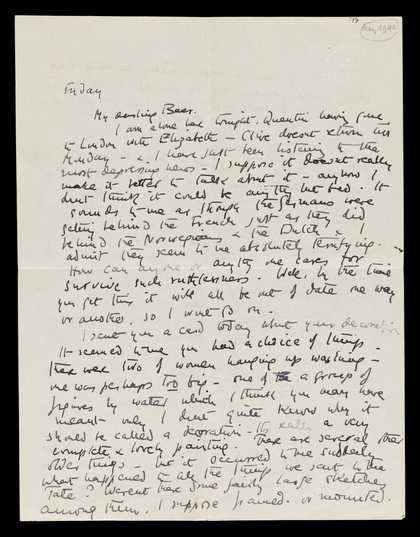 May 1940
Friday
My darling Bear.
I am alone here tonight, Quentin having gone
to London with Elizabeth – Clive doesn't return till
Monday – & I have just been listening to the
most depressing news – I suppose it doesn't really
make it better to talk about it – anyhow I
don't think it could be anything but bad. It
sounds to me as though the Germans were
getting behind the French just as they did
behind the Norwegians & the Dutch – I
admit they seem to me absolutely terrifying. –
How can anyone or anything one cares for
survive such ruthlessness. Well, by the time
you get this it will all be out of date one way
or another, so I won't go on.
I sent you a card today about your decoration
It seemed to me you had a choice of things –
there were two of women hanging up washing –
one was perhaps too big – one of a group of
figures by water which I think you may have
meant – only I don't quite know why it
should be called a decoration – It's really a very
complete & lovely painting. There are several other
older things – but it occurred to me suddenly
what happened to all the things we sent to the
Tate? Weren't there some fairly large sketches
among them, I suppose framed or mounted.